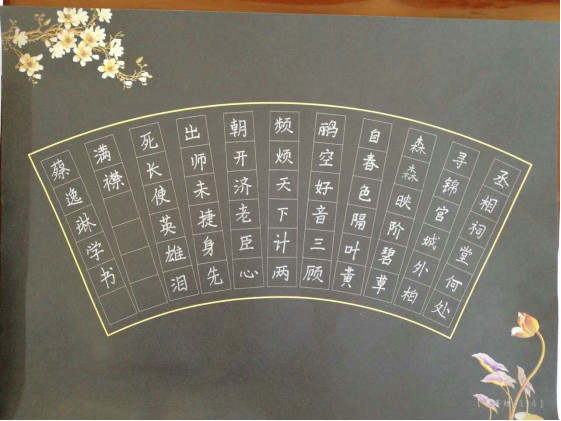 丞相祠堂何处
寻锦官城外柏
森森映阶碧草
自春色隔叶黄
鹂空好音三顾
频烦天下计两
朝开济老臣心
出师未捷身先
死长使英雄泪
满襟
蔡逸琳学书